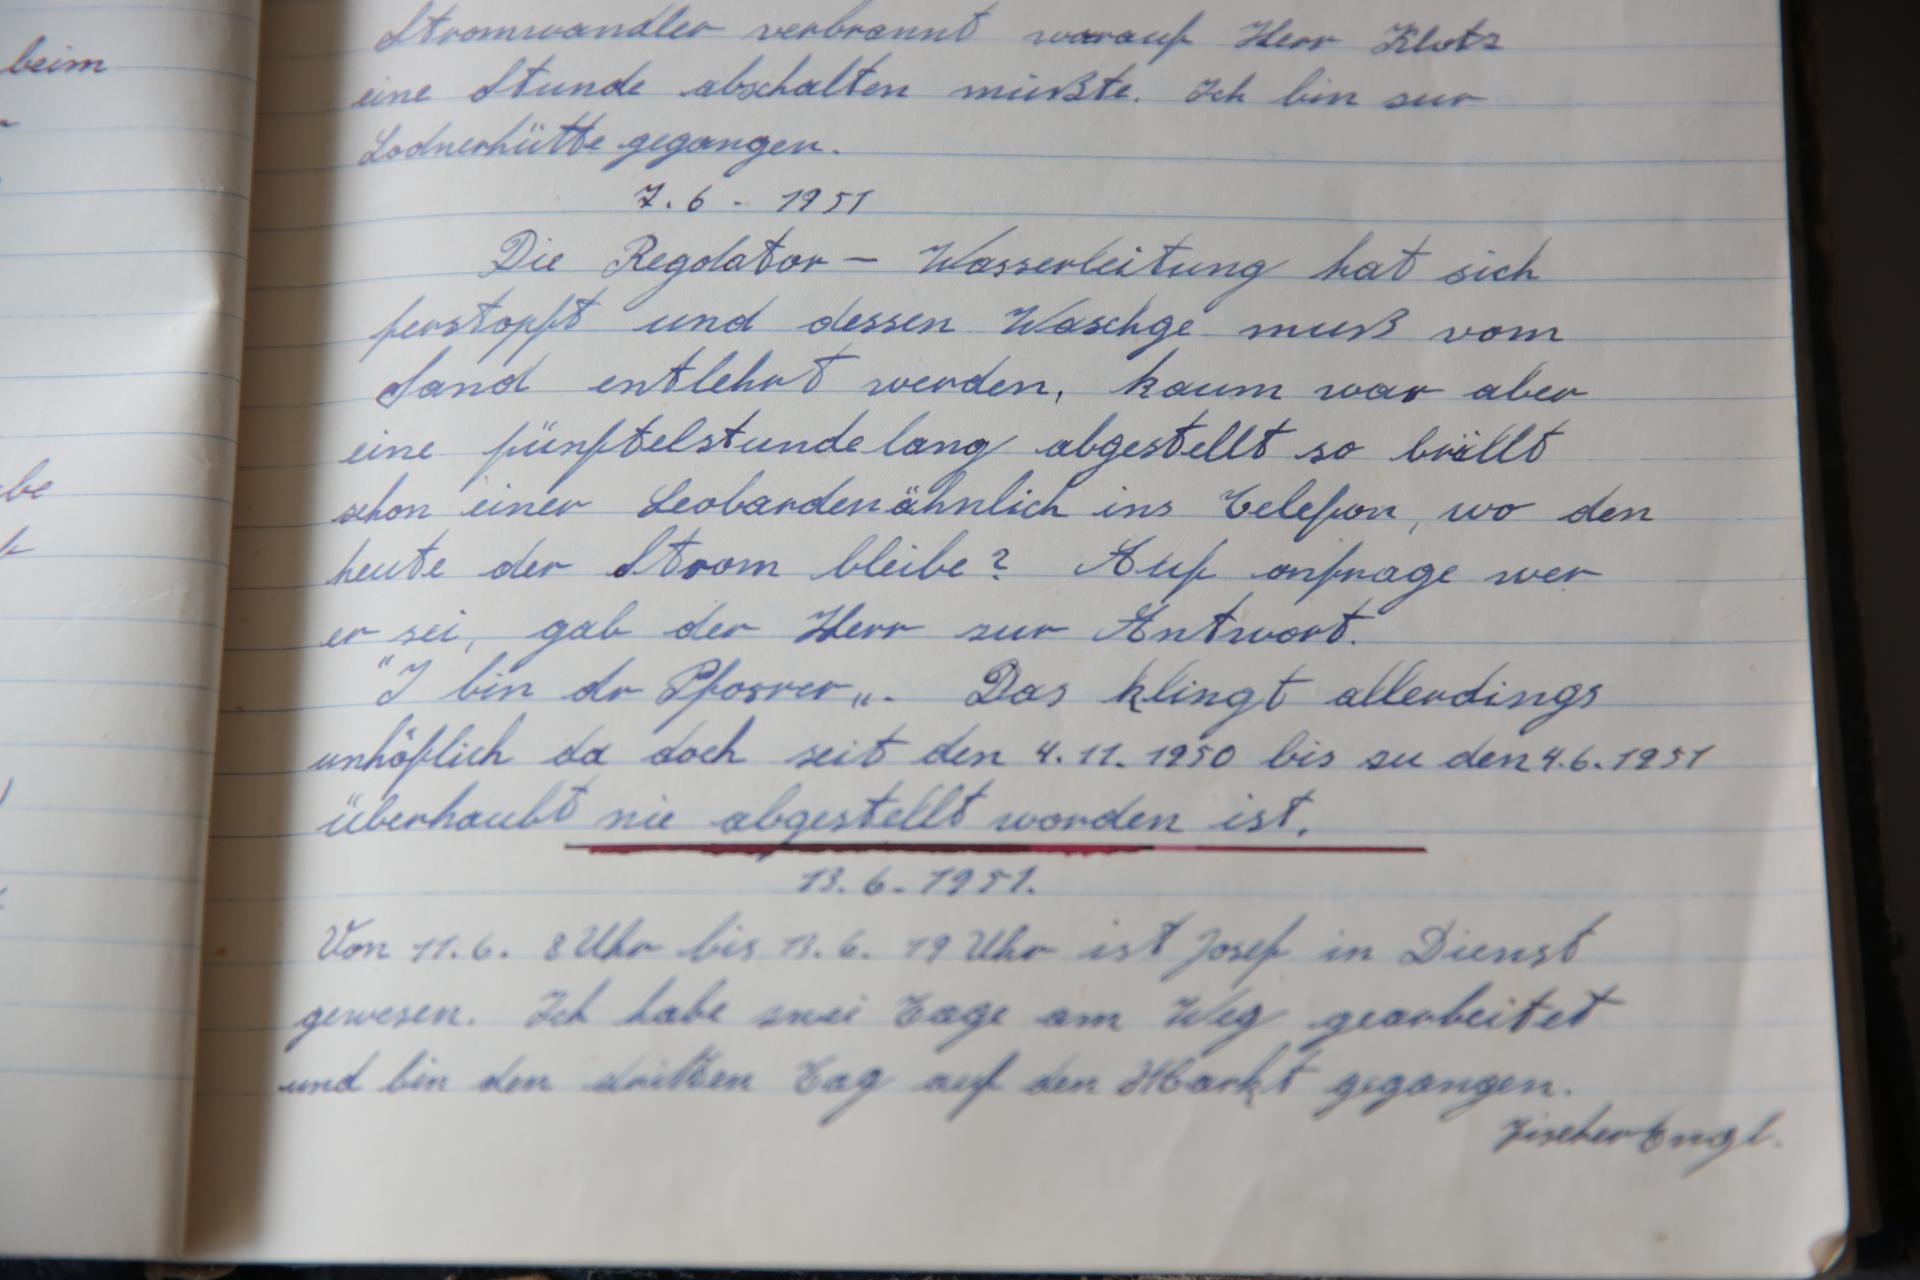 beim
Stromwandler verbrannt worauf Herr Klotz
eine Stunde abschalten mußte. Ich bin zur
Lodnerhütte gegangen.
7.6 - 1951
Die Regolator - Wasserleitung hat sich
ferstopft und dessen Waschge muß vom
Sand entlehrt werden, kaum war aber
eine fünftelstunde lang abgestellt so brüllt
schon einer Leobardenähnlich ins Telefon, wo den
heute der Strom bleibe? Auf anfrage wer
er sei, gab der Herr zur Antwort.
"I bin dr Pfosrer„. Das klingt allerdings
unhöflich da doch seit den 4.11.1950 bis zu den 4.6.1951
überhaubt nie abgestellt worden ist.
13.6.-1951.
Von 11.6. 8 Uhr bis 13.6. 19 Uhr ist Josef in Dienst
gewesen. Ich habe zwei Tage am Weg gearbeitet
und bin den dritten Tag auf den Markt gegangen.
Fischer Engl.